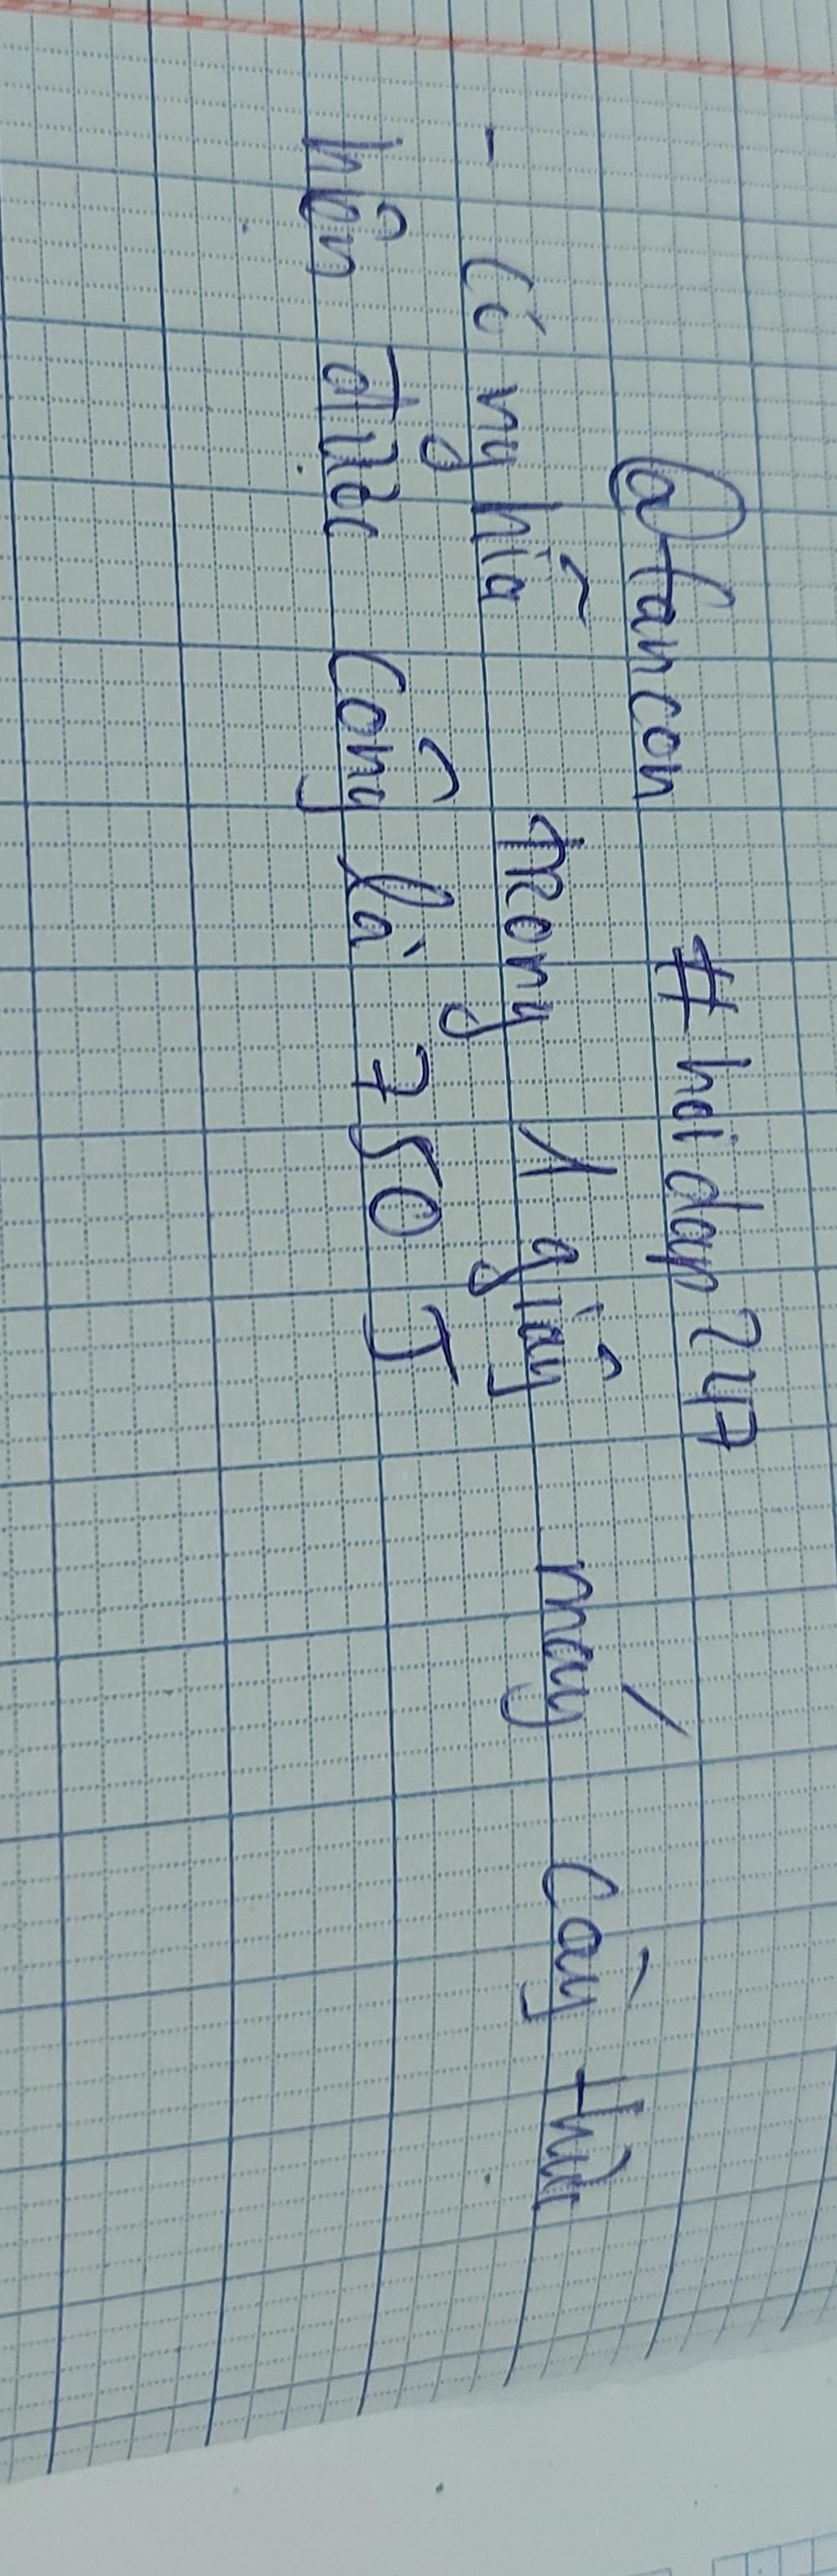 @fancon #hoidap247
- Có nghĩa trong 1 giây máy cáy thức
hiện được công là 750 J